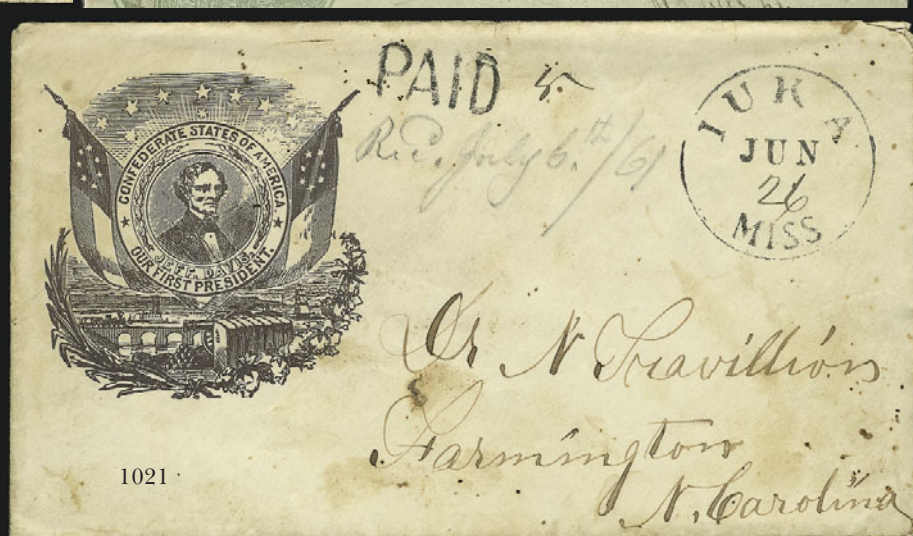 PAID 5
Rec. July 6.th/61
IUKA
JUN
26
MISS
CONFEDERATE STATES OF AMERICA
JEFF. DAVIS.
OUR FIRST PRESIDENT.
Dr N Travillion
Farmington
N. Carolina
1021